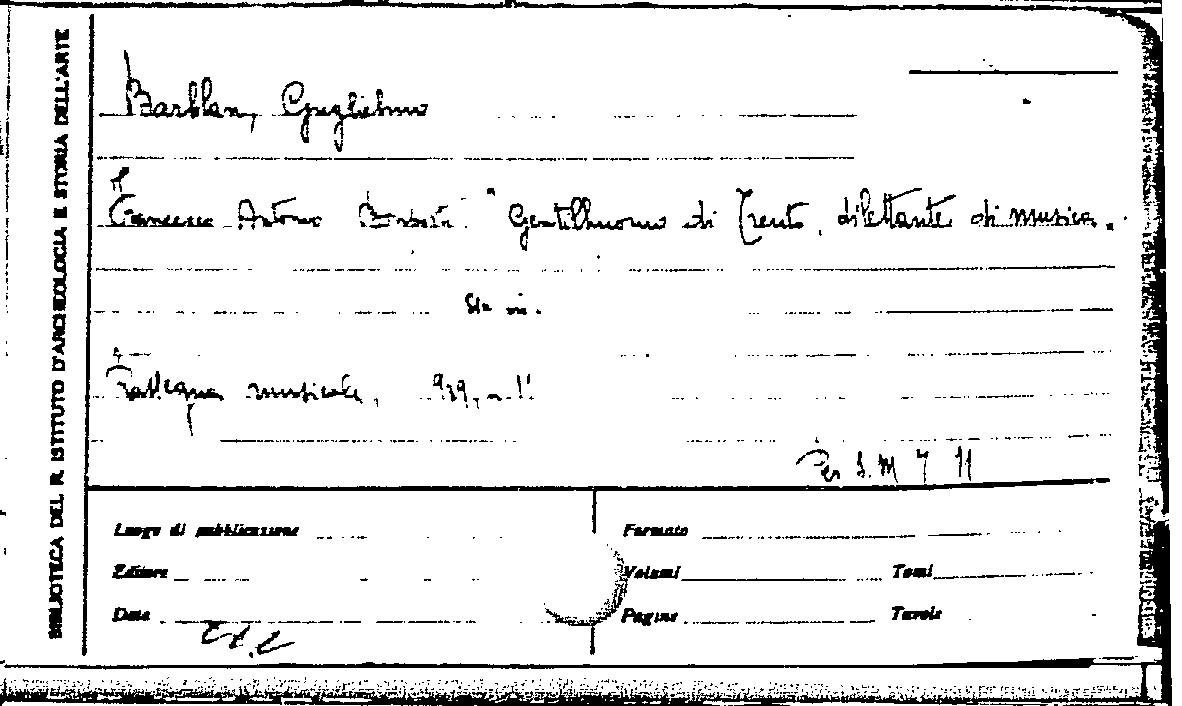 BIBLIOTECA DEL R. ISTITUTO D'ARCHEOLOGIA E STORIA DELL'ARTE
Barblan, Guglielmo
Francesco Antonio "Gentilhuomo di Trento, dilettante di musica.
Rassegna musicale, 939, n. 11
Per S. M 7 11
Luogo di pubblicazione
Formato
Editore
Volumi Tomi
Data
Pagine Tavole